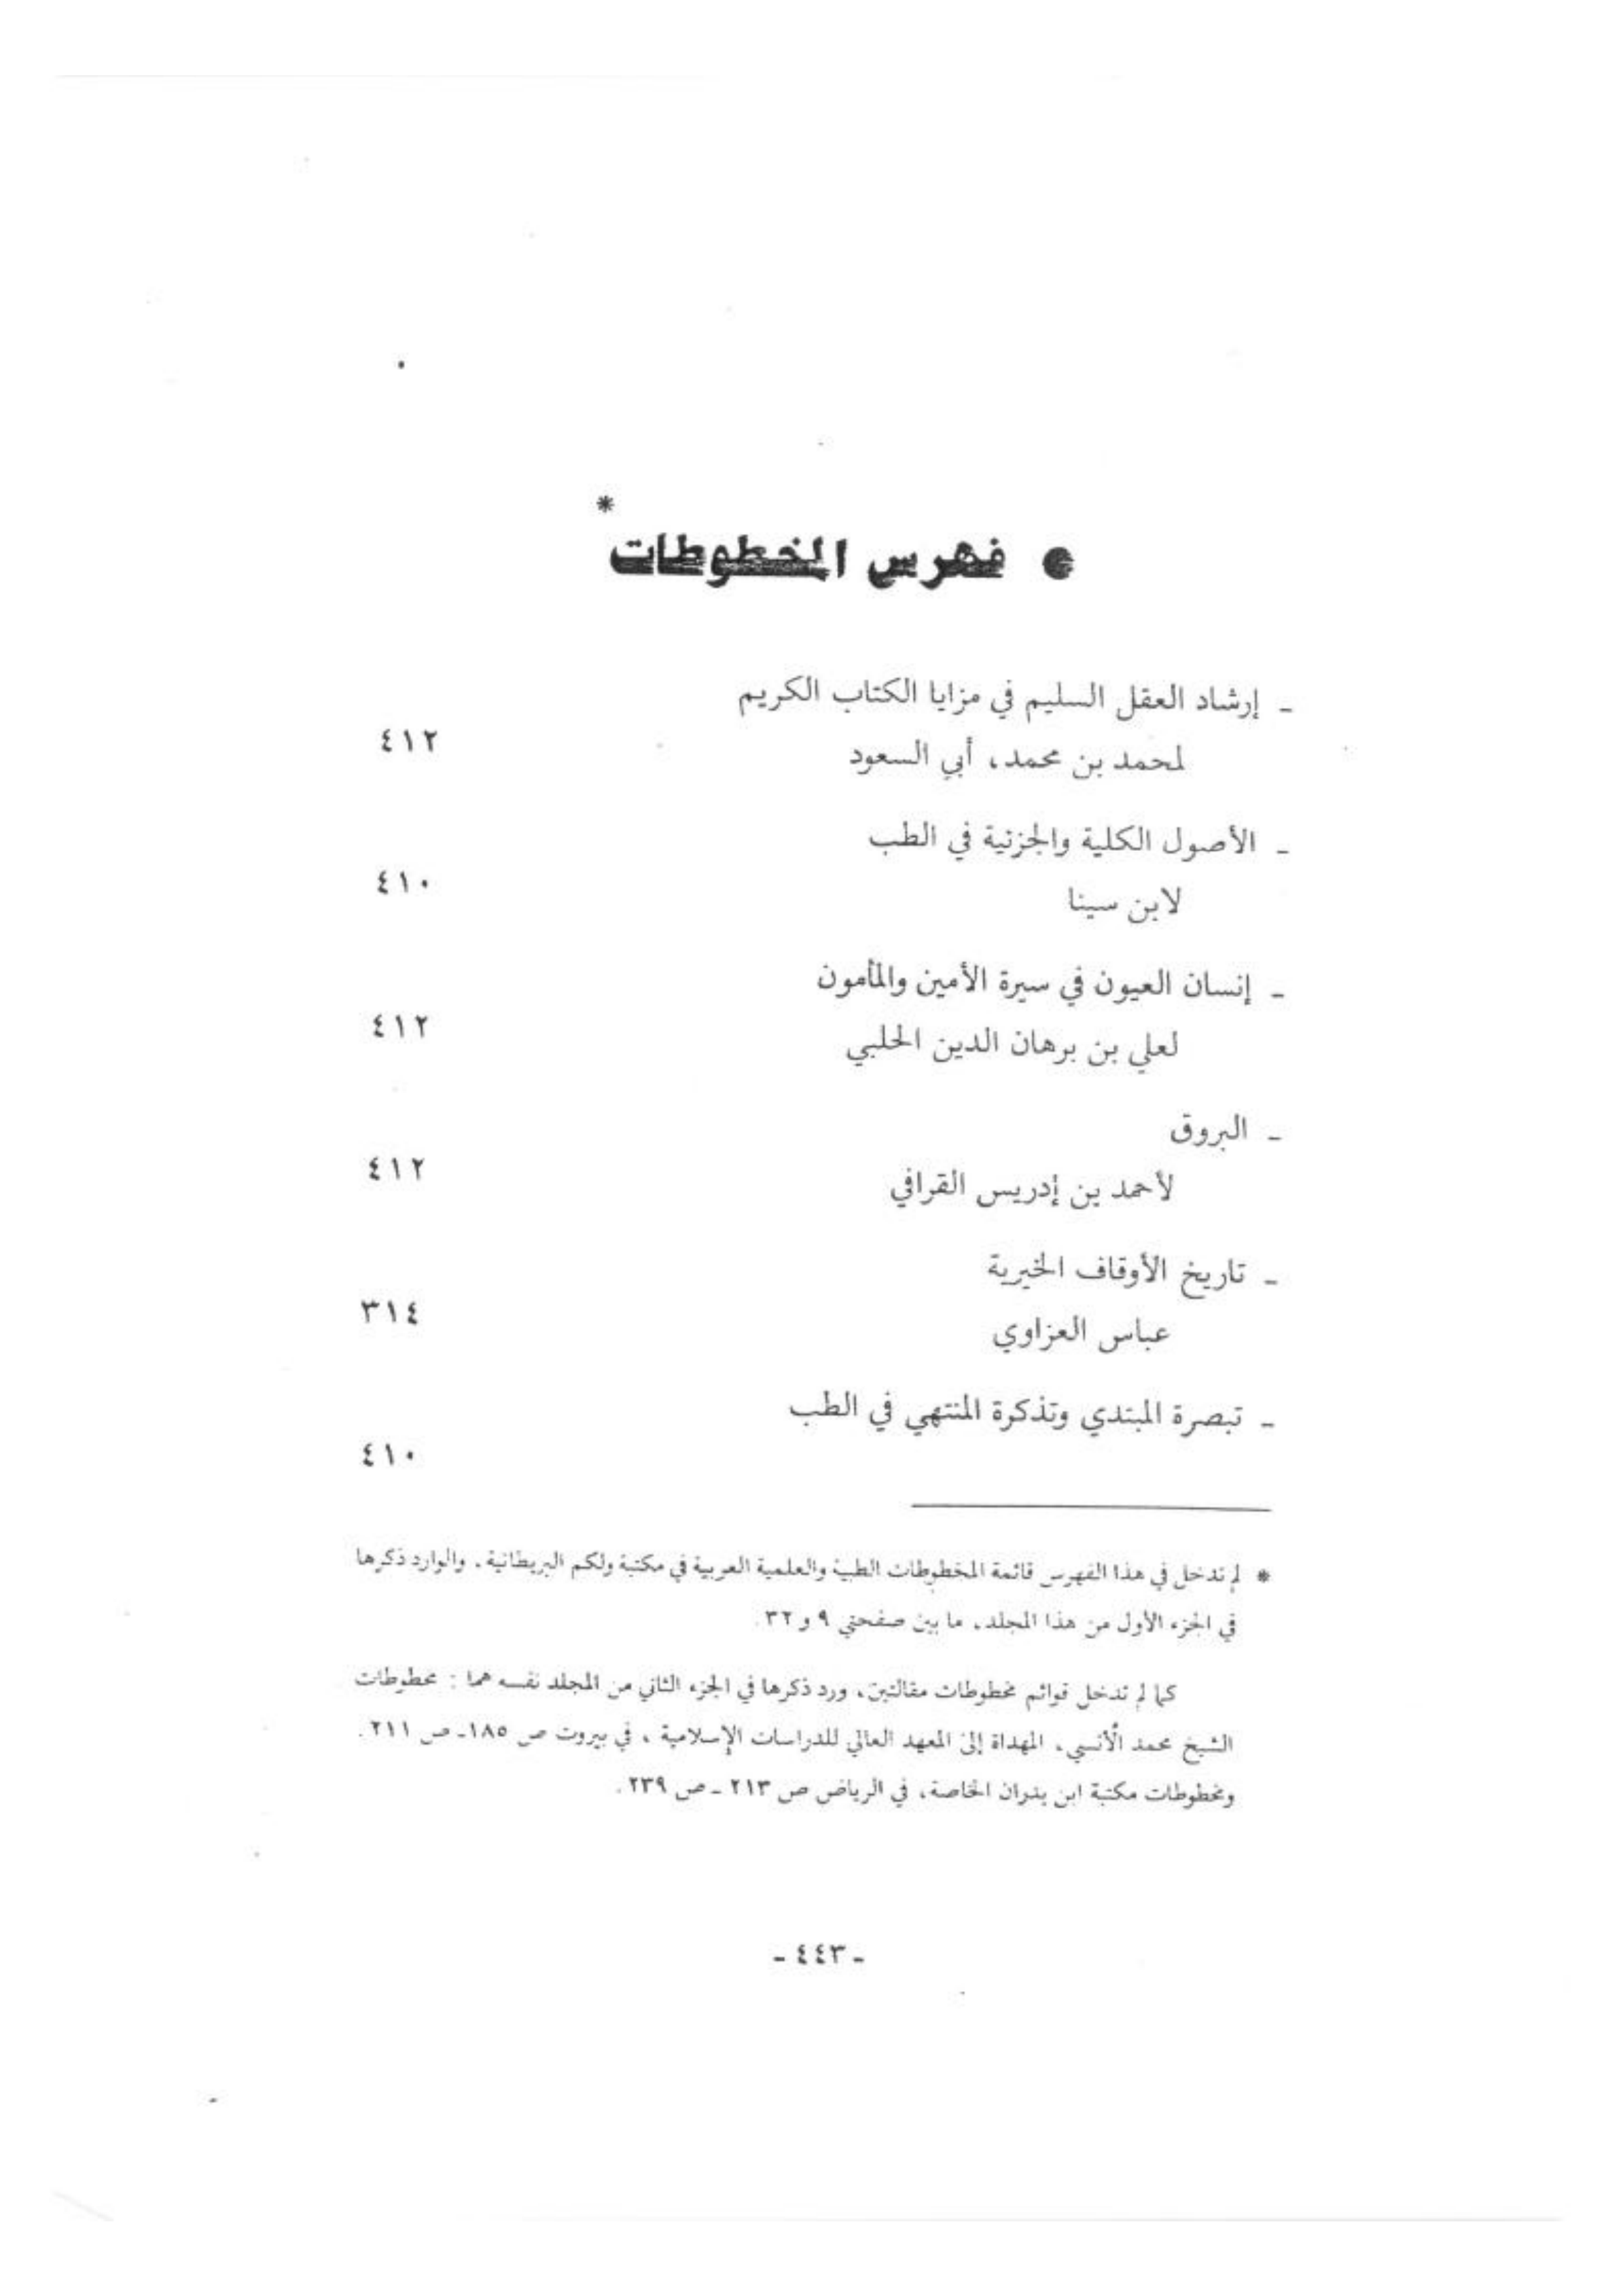 *
● فهرس المخطوطات
ـ إرشاد العقل السليم في مزايا الكتاب الكريم
٤١٢
لمحمد بن محمد، أبي السعود
ـ الأصول الكلية والجزئية في الطب
٤١٠
لابن سينا
ـ إنسان العيون في سيرة الأمين والمأمون
٤١٢
لعلي بن برهان الدين الحلبي
ـ البروق
٤١٢
لأحمد بن إدريس القرافي
ـ تاريخ الأوقاف الخيرية
٣١٤
عباس العزاوي
ـ تبصرة المبتدي وتذكرة المنتهي في الطب
٤١٠
* لم تدخل في هذا الفهرس قائمة المخطوطات الطبية والعلمية العربية في مكتبة ولكم البريطانية، والوارد ذكرها
في الجزء الأول من هذا المجلد، ما بين صفحتي ٩ و ٣٢.
كما لم تدخل قوائم مخطوطات مقالتين، ورد ذكرها في الجزء الثاني من المجلد نفسه هما : مخطوطات
الشيخ محمد الأنسي، المهداة إلى المعهد العالي للدراسات الإسلامية ، في بيروت ص ١٨٥ـ ص ٢١١ .
ومخطوطات مكتبة ابن بدران الخاصة، في الرياض ص ٢١٣ ـ ص ٢٣٩ .
ـ ٤٤٣ ـ